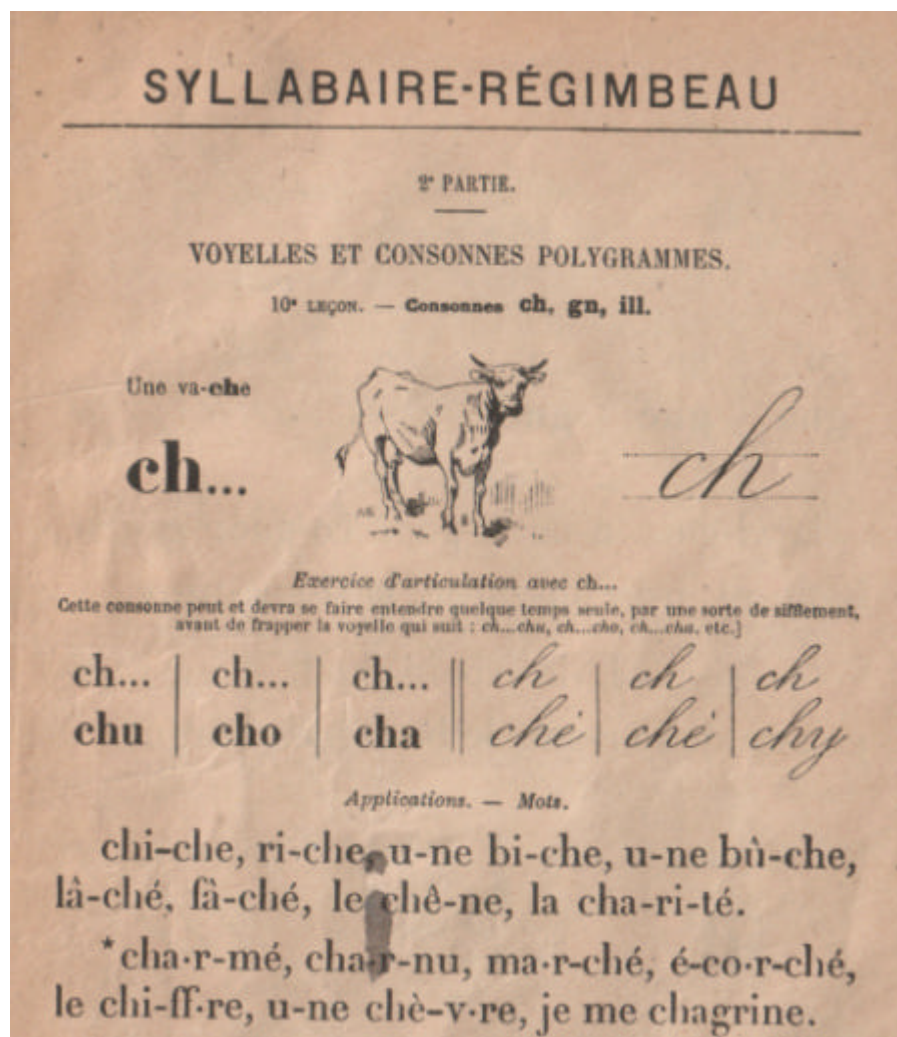 SYLLABAIRE-RÉGIMBEAU
2e PARTIE.
VOYELLES ET CONSONNES POLYGRAMMES.
10e LEÇON. — Consonnes ch, gn, ill.
Une va-che
ch...
ch
Exercice d'articulation avec ch...
Cette consonne peut et devra se faire entendre quelque temps seule, par une sorte de sifflement,
avant de frapper la voyelle qui suit : ch...chu, ch...cho, ch...cha, etc.]
ch... ch... ch... ch ch ch
chu cho cha ché ché chy
Applications. — Mots.
chi-che, ri-che, u-ne bi-che, u-ne bû-che,
lâ-ché, fâ-ché, le chê-ne, la cha-ri-té.
*cha-r-mé, cha-r-nu, ma-r-ché, é-co-r-ché,
le chi-ff-re, u-ne chè-v-re, je me chagrine.